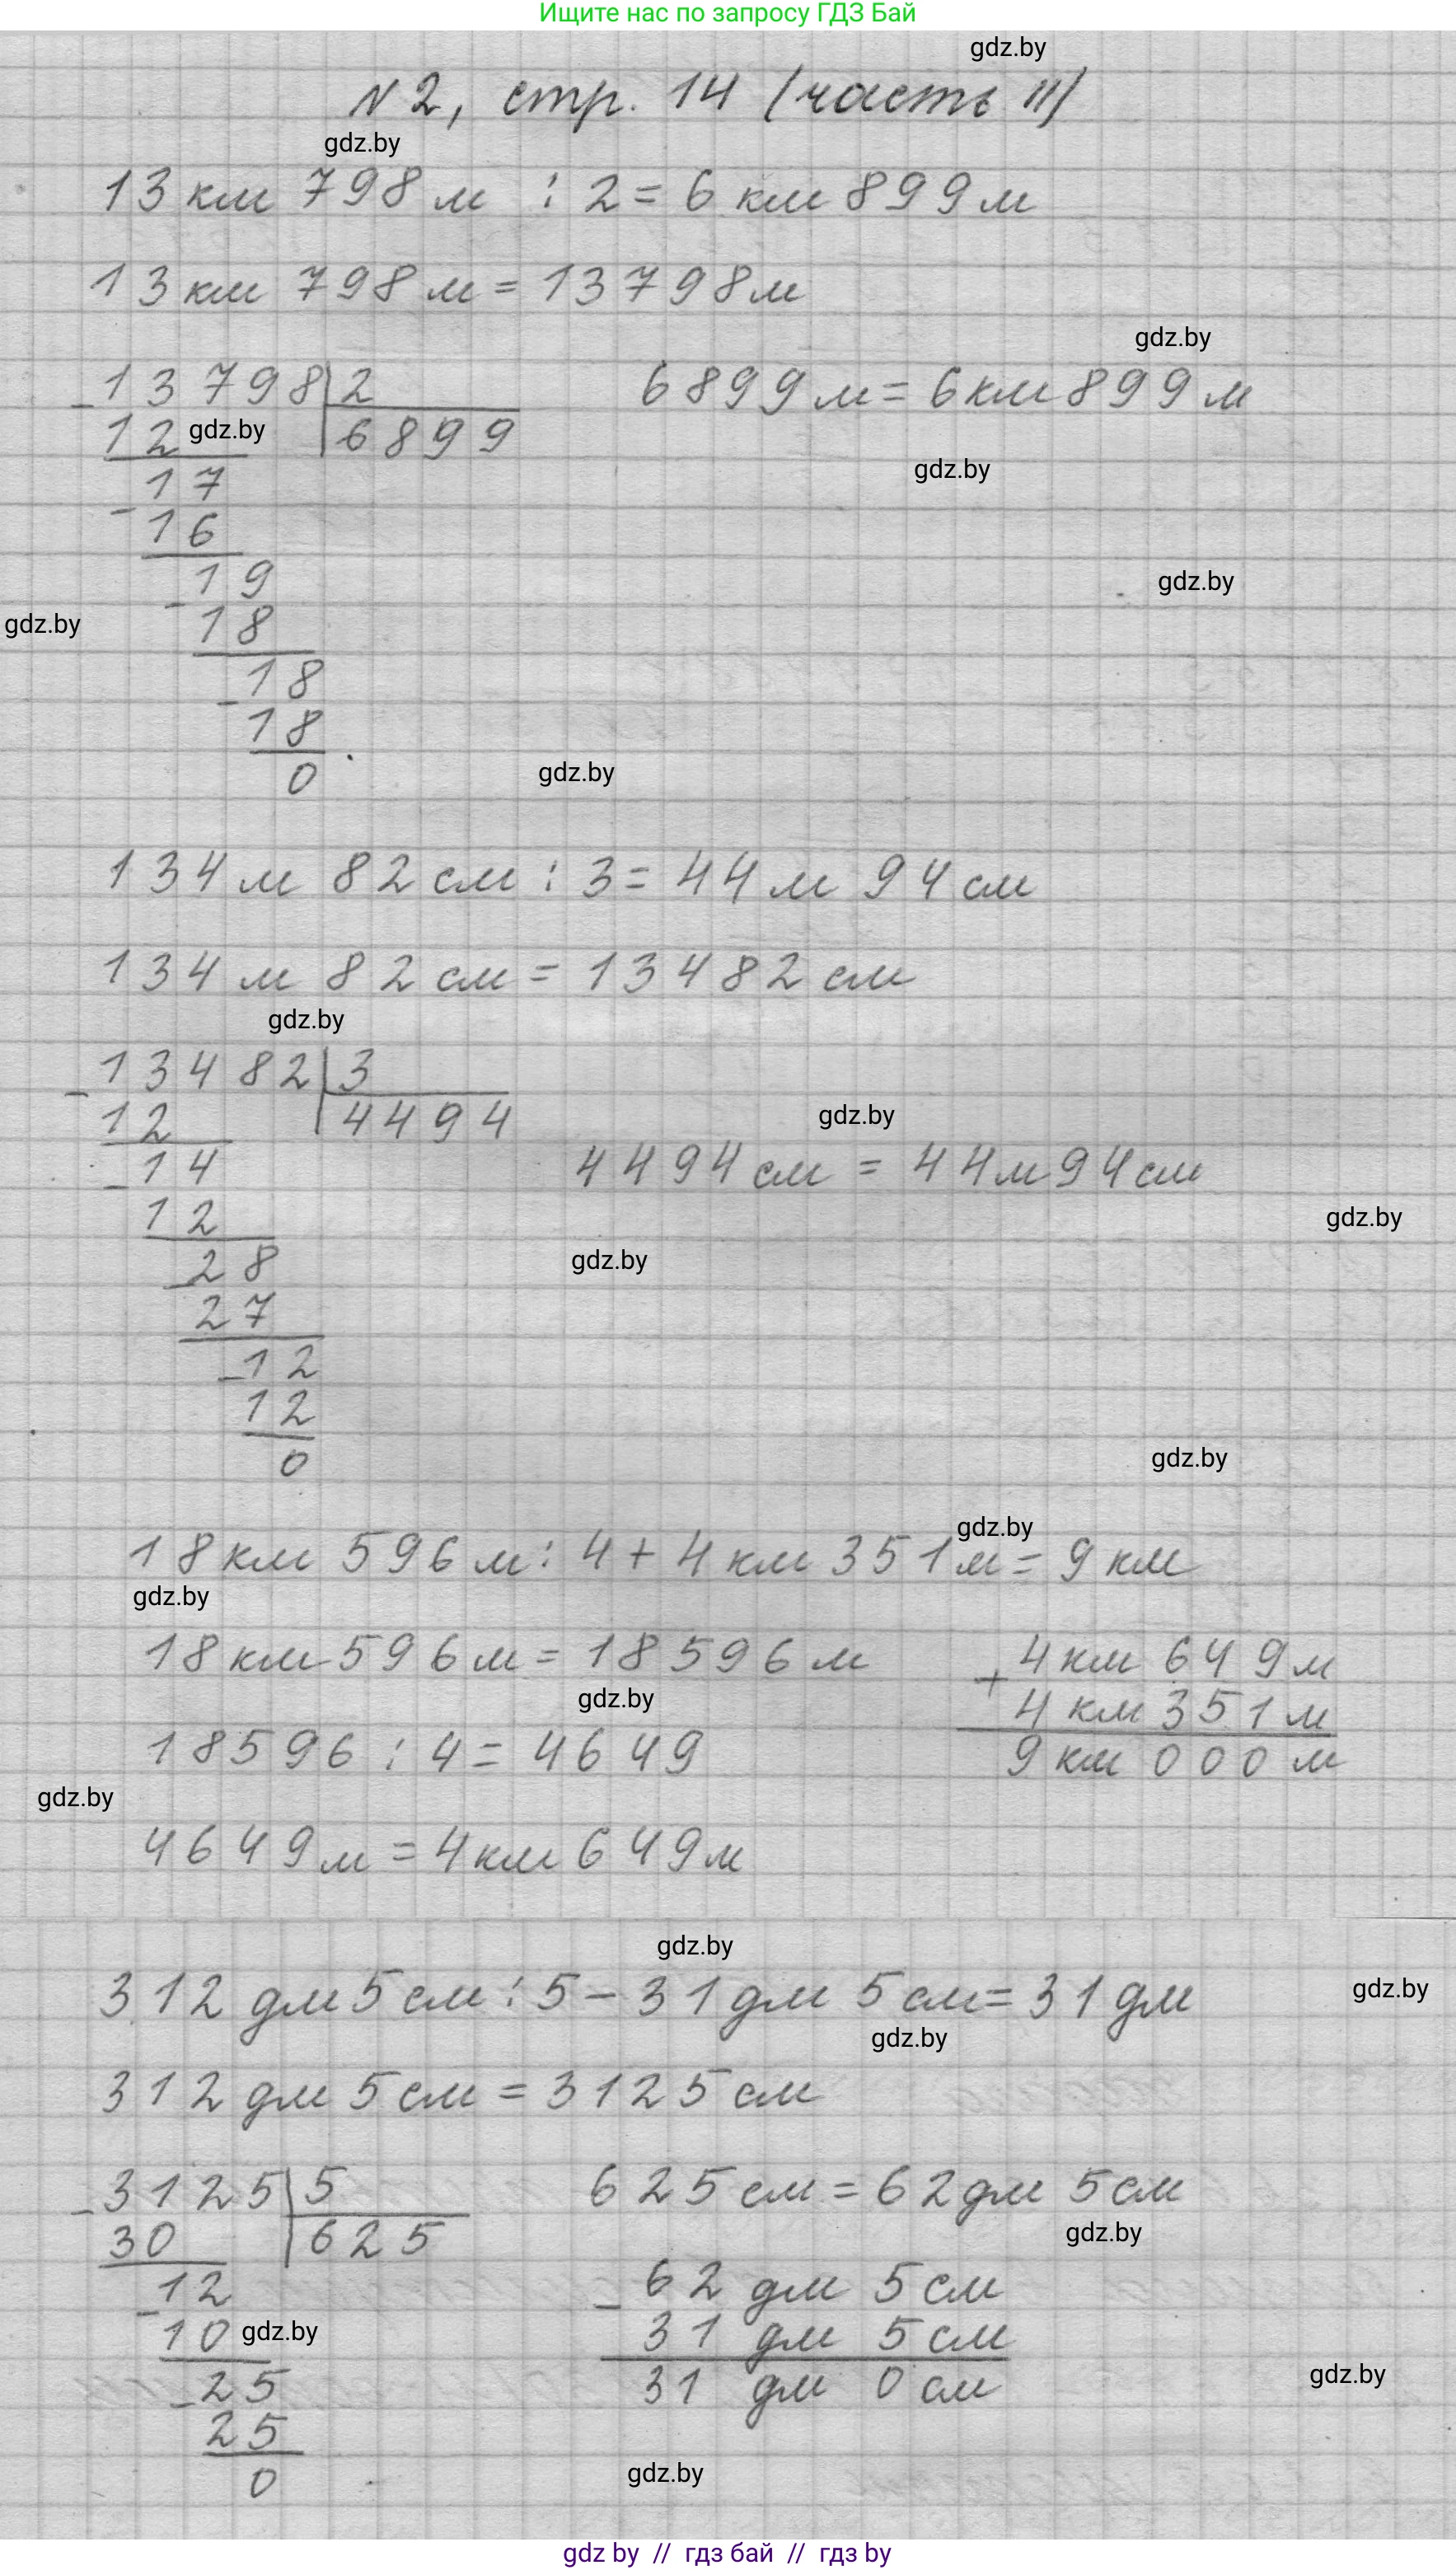 Ищите нас по запросу ГДЗ Бай
gdz.by
№2, стр. 14 (часть II)
gdz.by
13 км 798 м : 2 = 6 км 899 м
13 км 798 м = 13798 м
gdz.by
13798 | 2
6899 м = 6 км 899 м
- 12
gdz.by
6899
gdz.by
17
- 16
19
gdz.by
gdz.by
- 18
18
- 18
0
gdz.by
134 м 82 см : 3 = 44 м 94 см
134 м 82 см = 13482 см
gdz.by
13482 | 3
- 12
4494
gdz.by
14
4494 см = 44 м 94 см
- 12
gdz.by
28
gdz.by
- 27
12
- 12
0
gdz.by
gdz.by
18 км 596 м : 4 + 4 км 351 м = 9 км
gdz.by
18 км 596 м = 18596 м
4 км 649 м
gdz.by
+ 4 км 351 м
18596 : 4 = 4649
9 км 000 м
gdz.by
4649 м = 4 км 649 м
gdz.by
gdz.by
312 дм 5 см : 5 - 31 дм 5 см = 31 дм
gdz.by
312 дм 5 см = 3125 см
3125 | 5
625 см = 62 дм 5 см
- 30
625
gdz.by
12
62 дм 5 см
- 10
gdz.by
- 31 дм 5 см
25
31 дм 0 см
gdz.by
- 25
0
gdz.by
gdz by // гдз бай // гдз by